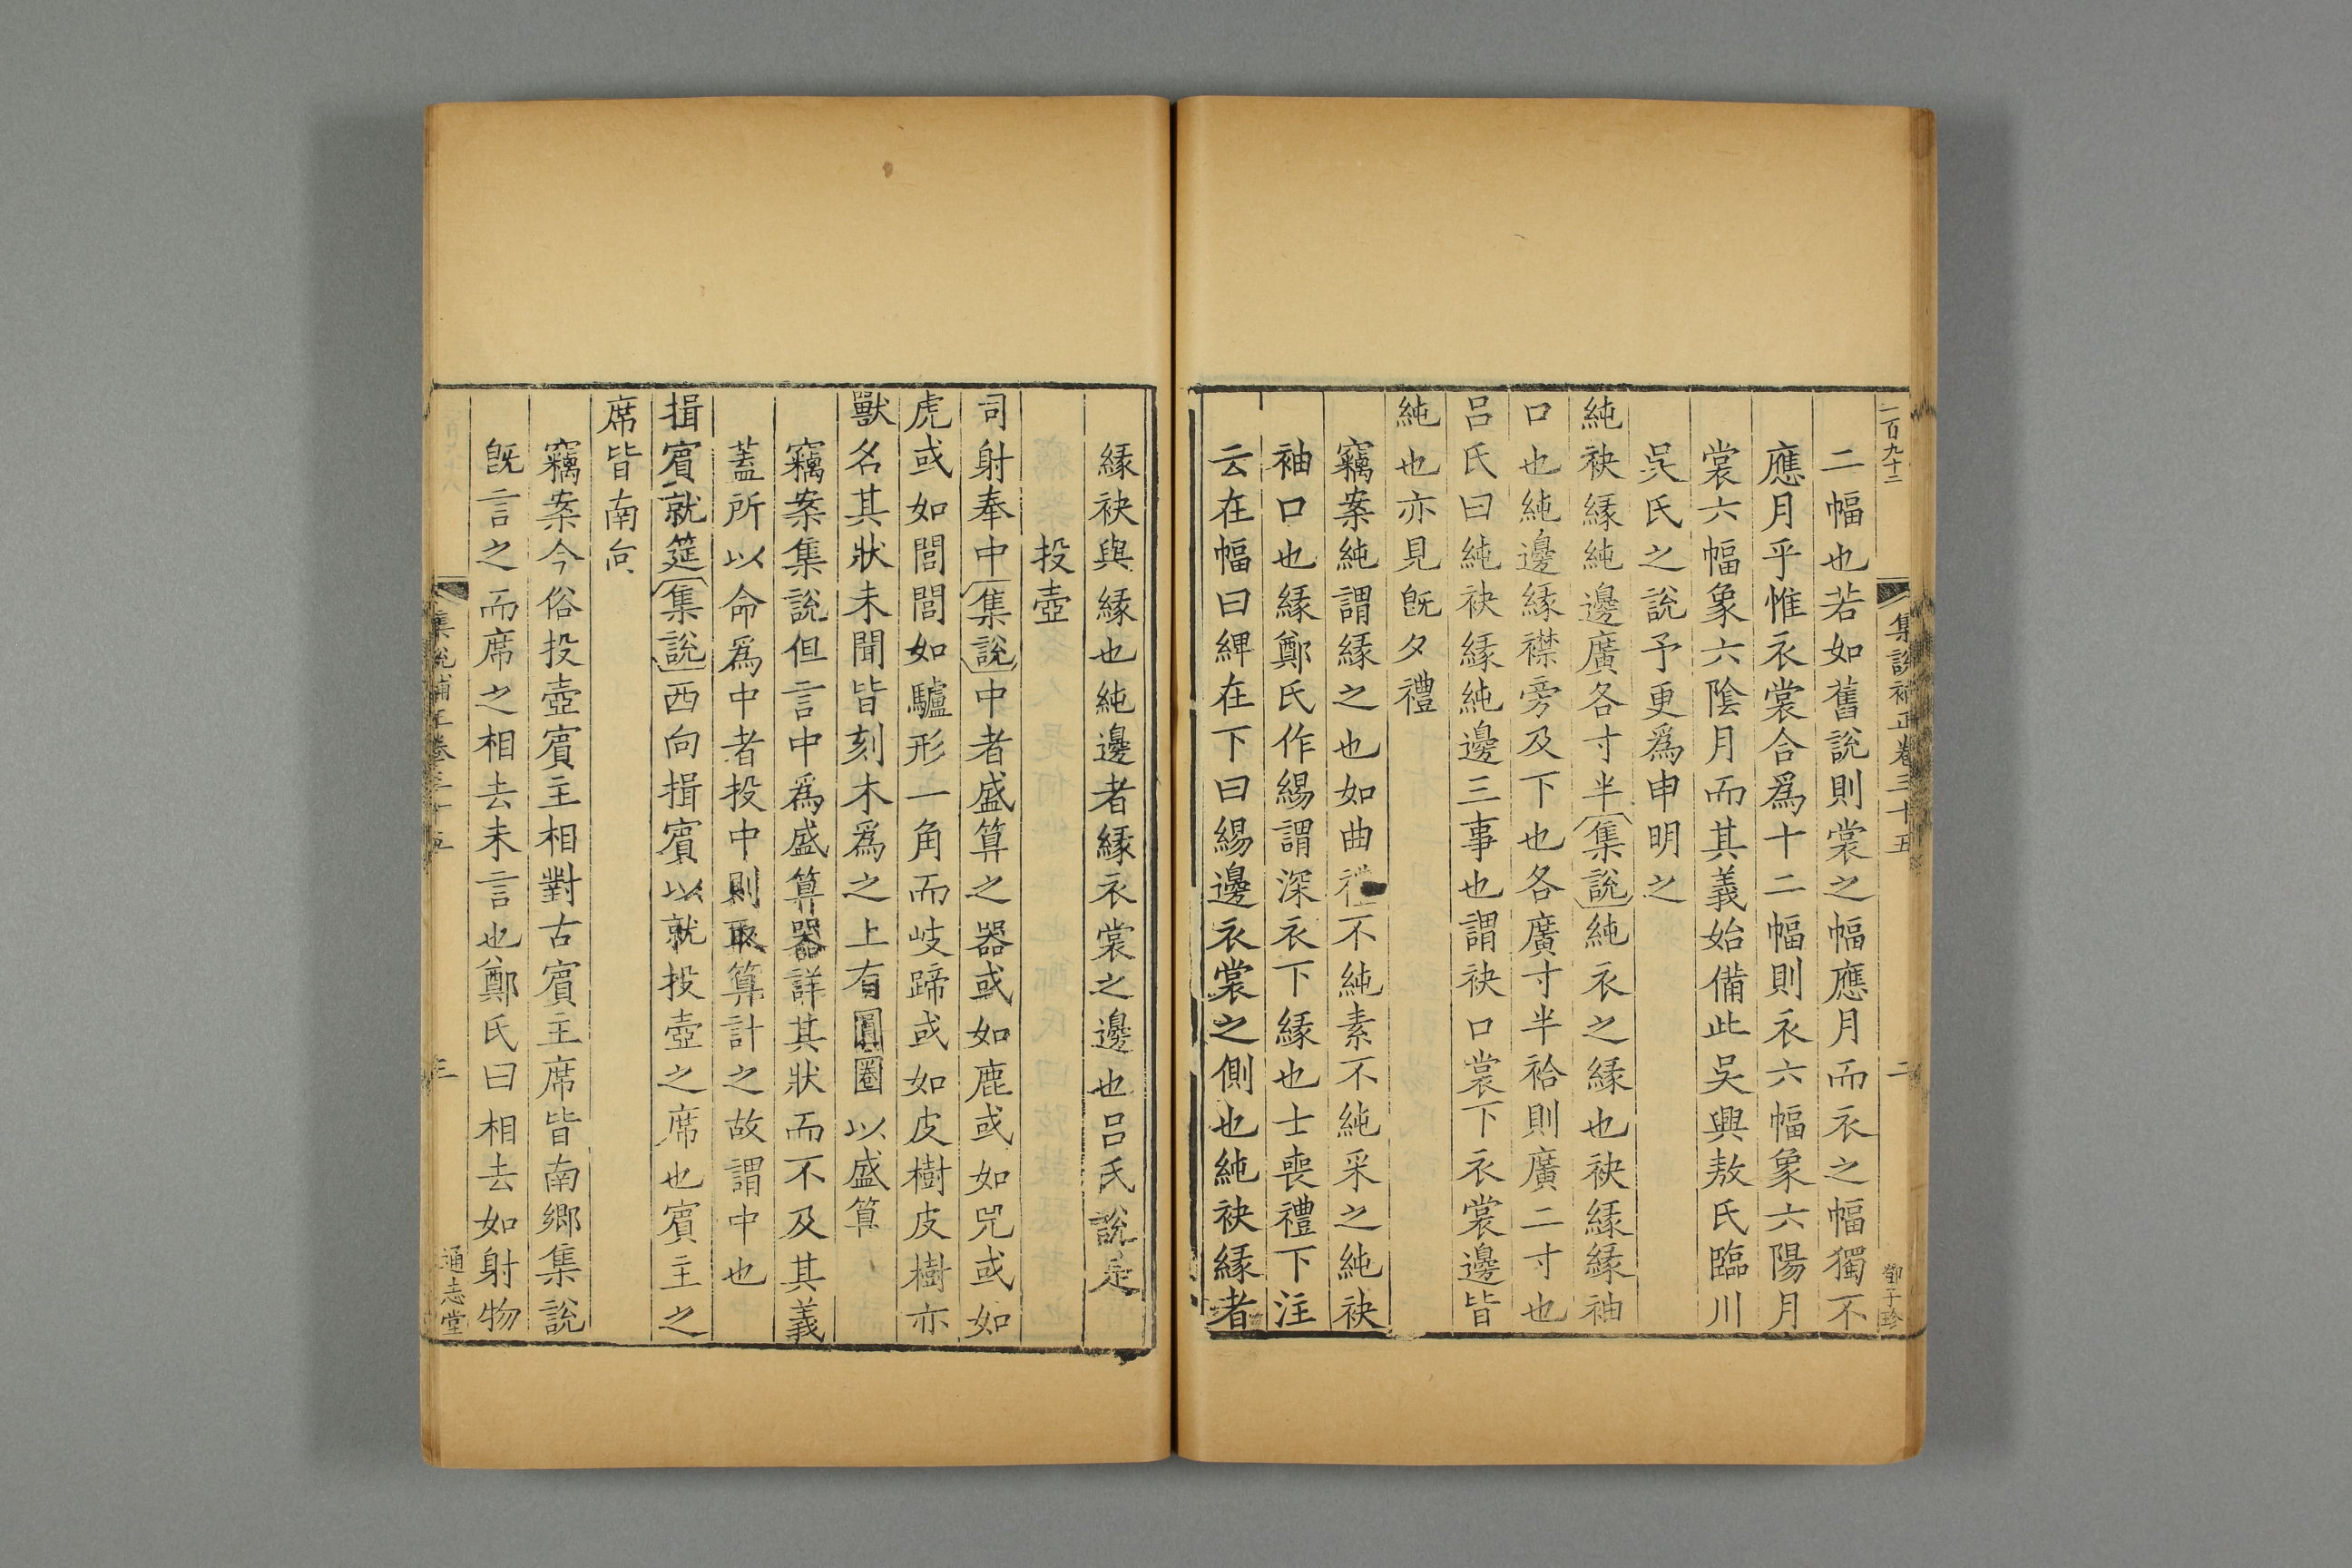 一百九十三
集說補正卷三十五
二
鄧子珍
二幅也若如舊說則裳之幅應月而衣之幅獨不
應月乎惟衣裳合爲十二幅則衣六幅象六陽月
裳六幅象六陰月而其義始備此吳興敖氏臨川
吳氏之說予更爲申明之
純袂緣純邊廣各寸半集說純衣之緣也袂緣緣袖
口也純邊緣襟旁及下也各廣寸半袷則廣二寸也
呂氏曰純袂緣純邊三事也謂袂口裳下衣裳邊皆
純也亦見旣夕禮
竊案純謂緣之也如曲禮不純素不純采之純袂
袖口也緣鄭氏作緆謂深衣下緣也士喪禮下注
云在幅曰綼在下曰緆邊衣裳之側也純袂緣者
緣袂與緣也純邊者緣衣裳之邊也呂氏說是
投壺
司射奉中集說中者盛算之器或如鹿或如兕或如
虎或如閭閭如驢形一角而岐蹄或如皮樹皮樹亦
獸名其狀未聞皆刻木爲之上有圓圈以盛算
竊案集說但言中爲盛算器詳其狀而不及其義
蓋所以命爲中者投中則取算計之故謂中也
揖賔就筵集說西向揖賔以就投壺之席也賔主之
席皆南向
竊案今俗投壺賔主相對古賔主席皆南鄉集說
旣言之而席之相去未言也鄭氏曰相去如射物
集說補正卷三十五
三
通志堂